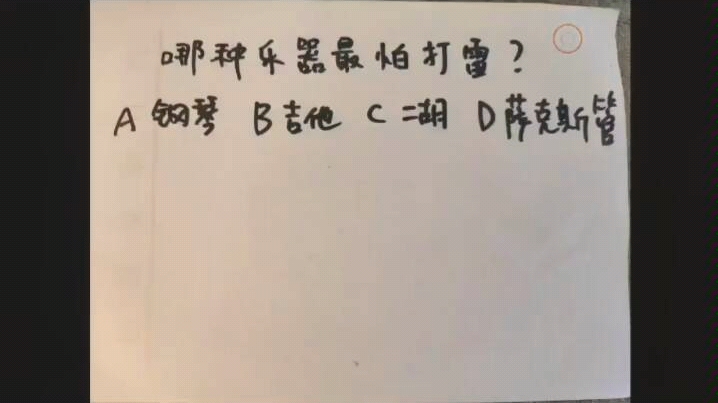 哪种乐器最怕打雷？
A 钢琴 B 吉他 C 二胡 D 萨克斯管